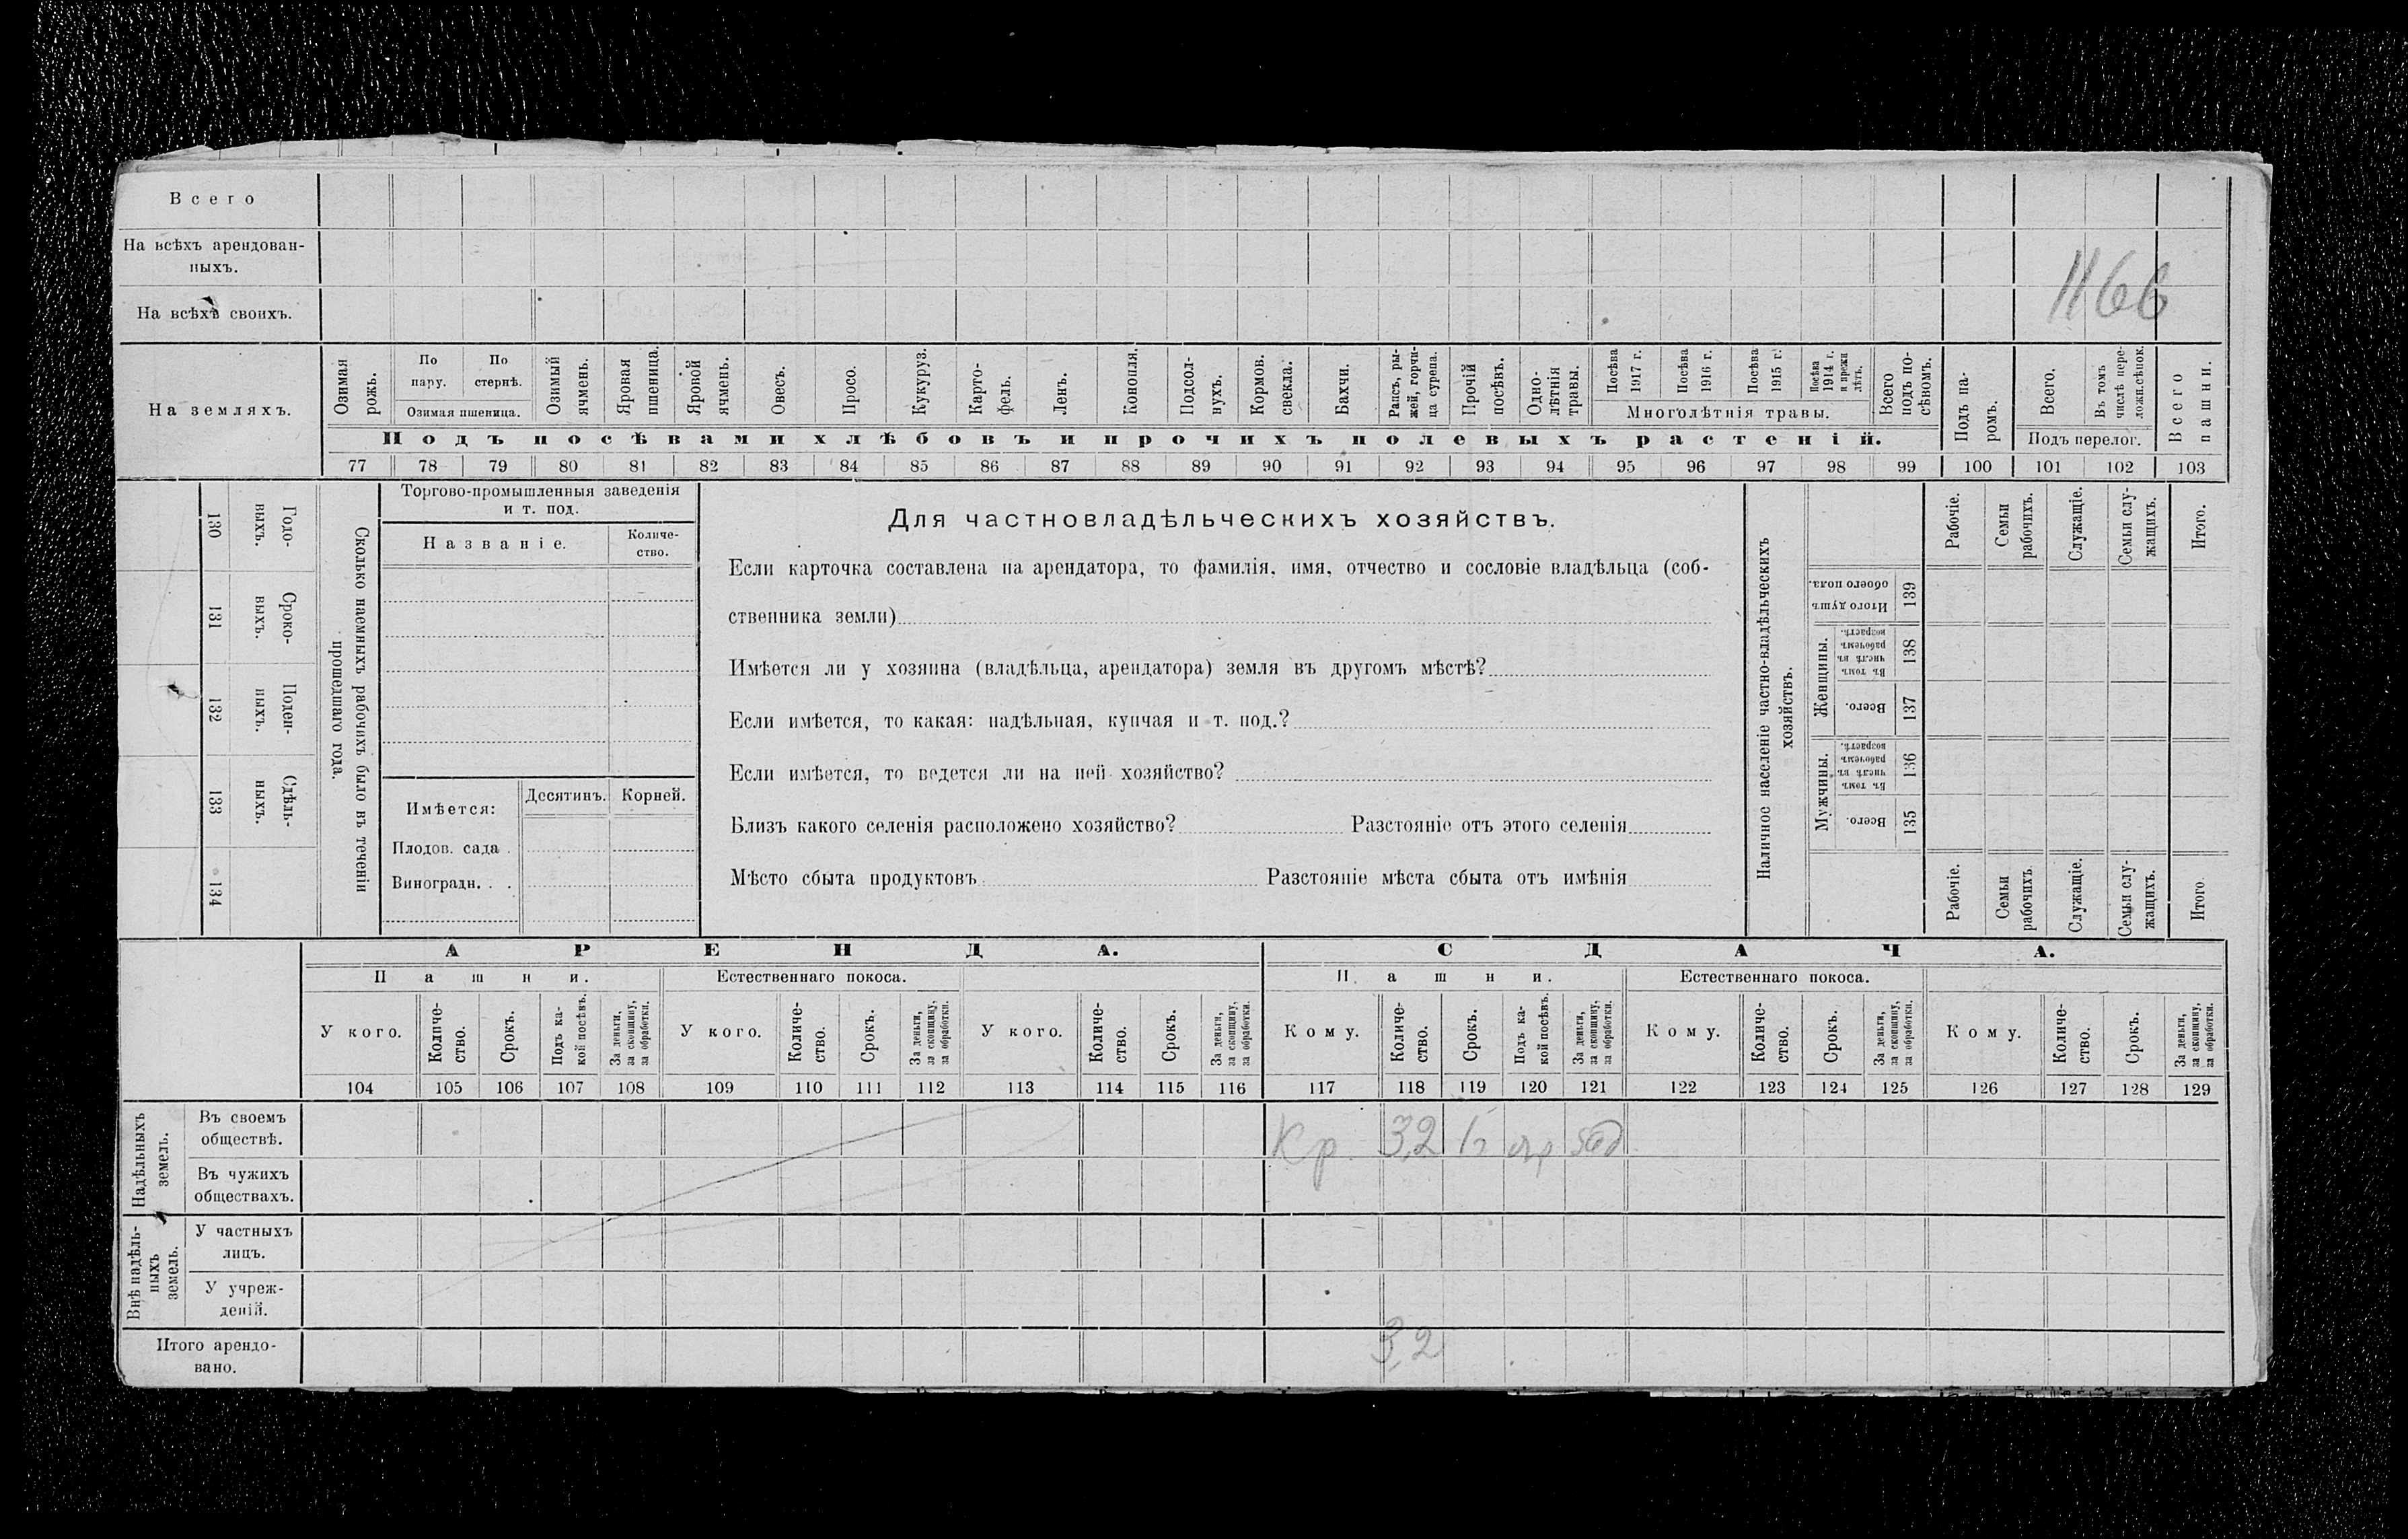 Всего
На всѣхъ арендован-
ныхъ.
1166
На всѣхъ своихъ.
На земляхъ.
Озимая рожь.
По пару.
По стернѣ.
Озимая пшеница.
Озимый ячмень.
Яровая пшеница.
Яровой ячмень.
Овесъ.
Просо.
Кукуруз.
Карто-
фель.
Ленъ.
Конопля.
Подсол-
нухъ.
Кормов. свекла.
Бахчи.
Рапсъ, ры-
жей, горчи-
ца сурепа.
Прочій посѣвъ.
Одно-
лѣтнія травы.
Посѣва 1917 г.
Посѣва 1916 г.
Посѣва 1915 г.
Посѣва 1914 г. и прежн лѣтъ.
Многолѣтнія травы.
Всего подъ по-
сѣвомъ.
Подъ посѣвами хлѣбовъ и прочихъ полевыхъ растеній.
Подъ па-
ромъ.
Всего.
Въ томъ числѣ пере-
ложн.сѣнок.
Подъ перелог.
Всего пашни.
77 78 79 80 81 82 83 84 85 86 87 88 89 90 91 92 93 94 95 96 97 98 99 100 101 102 103
Сколько наемныхъ рабочихъ было въ теченіи
прошедшаго года.
Годо-
выхъ.
130
Сроко-
выхъ.
131
Поден-
ныхъ.
132
Сдѣль-
ныхъ.
133
134
Торгово-промышленныя заведенія
и т. под.
Названіе.
Количе-
ство.
Имѣется:
Десятинъ.
Корней.
Плодов. сада .
Виноградн. . .
Для частновладѣльческихъ хозяйствъ.
Если карточка составлена на арендатора, то фамилія, имя, отчество и сословіе владѣльца (соб-
ственника земли)
Имѣется ли у хозяина (владѣльца, арендатора) земля въ другомъ мѣстѣ?
Если имѣется, то какая: надѣльная, купчая и т. под.?
Если имѣется, то ведется ли на ней хозяйство?
Близъ какого селенія расположено хозяйство? Разстояніе отъ этого селенія
Мѣсто сбыта продуктовъ Разстояніе мѣста сбыта отъ имѣнія
Наличное населеніе частно-владѣльческихъ
хозяйствъ.
Рабочіе.
Семьи рабочихъ.
Служащіе.
Семьи слу-
жащихъ.
Итого.
Итого душъ обоего пола.
139
Женщины.
Въ томъ числѣ въ рабочемъ возрастѣ.
138
Всего.
137
Мужчины.
Въ томъ числѣ въ рабочемъ возрастѣ.
136
Всего.
135
Рабочіе.
Семьи рабочихъ.
Служащіе.
Семьи слу-
жащихъ.
Итого
АРЕНДА.
СДАЧА.
Пашни.
Естественнаго покоса.
Пашни.
Естественнаго покоса.
У кого.
Количе-
ство.
Срокъ.
Подъ ка-
кой посѣвъ.
За деньги, за скопщину, за обработки.
У кого.
Количе-
ство.
Срокъ.
За деньги, за скопщину, за обработки.
У кого.
Количе-
ство.
Срокъ.
За деньги, за скопщину, за обработки.
Кому.
Количе-
ство.
Срокъ.
Подъ ка-
кой посѣвъ.
За деньги, за скопщину, за обработки.
Кому.
Количе-
ство.
Срокъ.
За деньги, за скопщину, за обработки.
Кому.
Количе-
ство.
Срокъ.
За деньги, за скопщину, за обработки.
104 105 106 107 108 109 110 111 112 113 114 115 116 117 118 119 120 121 122 123 124 125 126 127 128 129
Надѣльныхъ земель.
Въ своемъ
обществѣ.
Кр 3,2
Въ чужихъ
обществахъ.
Внѣ надѣль-
ныхъ земель.
У частныхъ
лицъ.
У учреж-
деній.
Итого арендо-
вано.
3,2